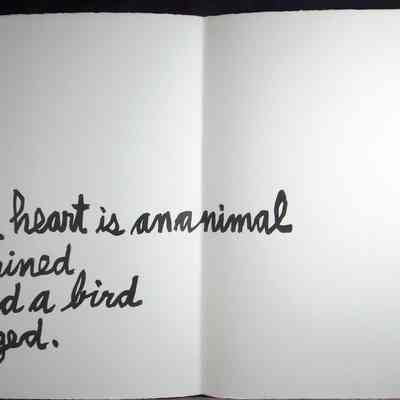 heart is ananimal
ined
d a bird
ged.